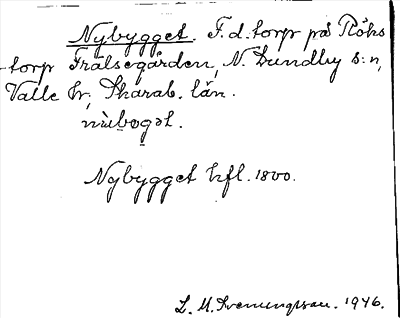 Nybygget. F.d. torp på Röks
torp Frälsegården, N. Lundby s:n,
Valle hr, Skarab. län.
nỳbₒgət.
Nybygget hfl. 1800.
L. M. Svenungsson. 1946.